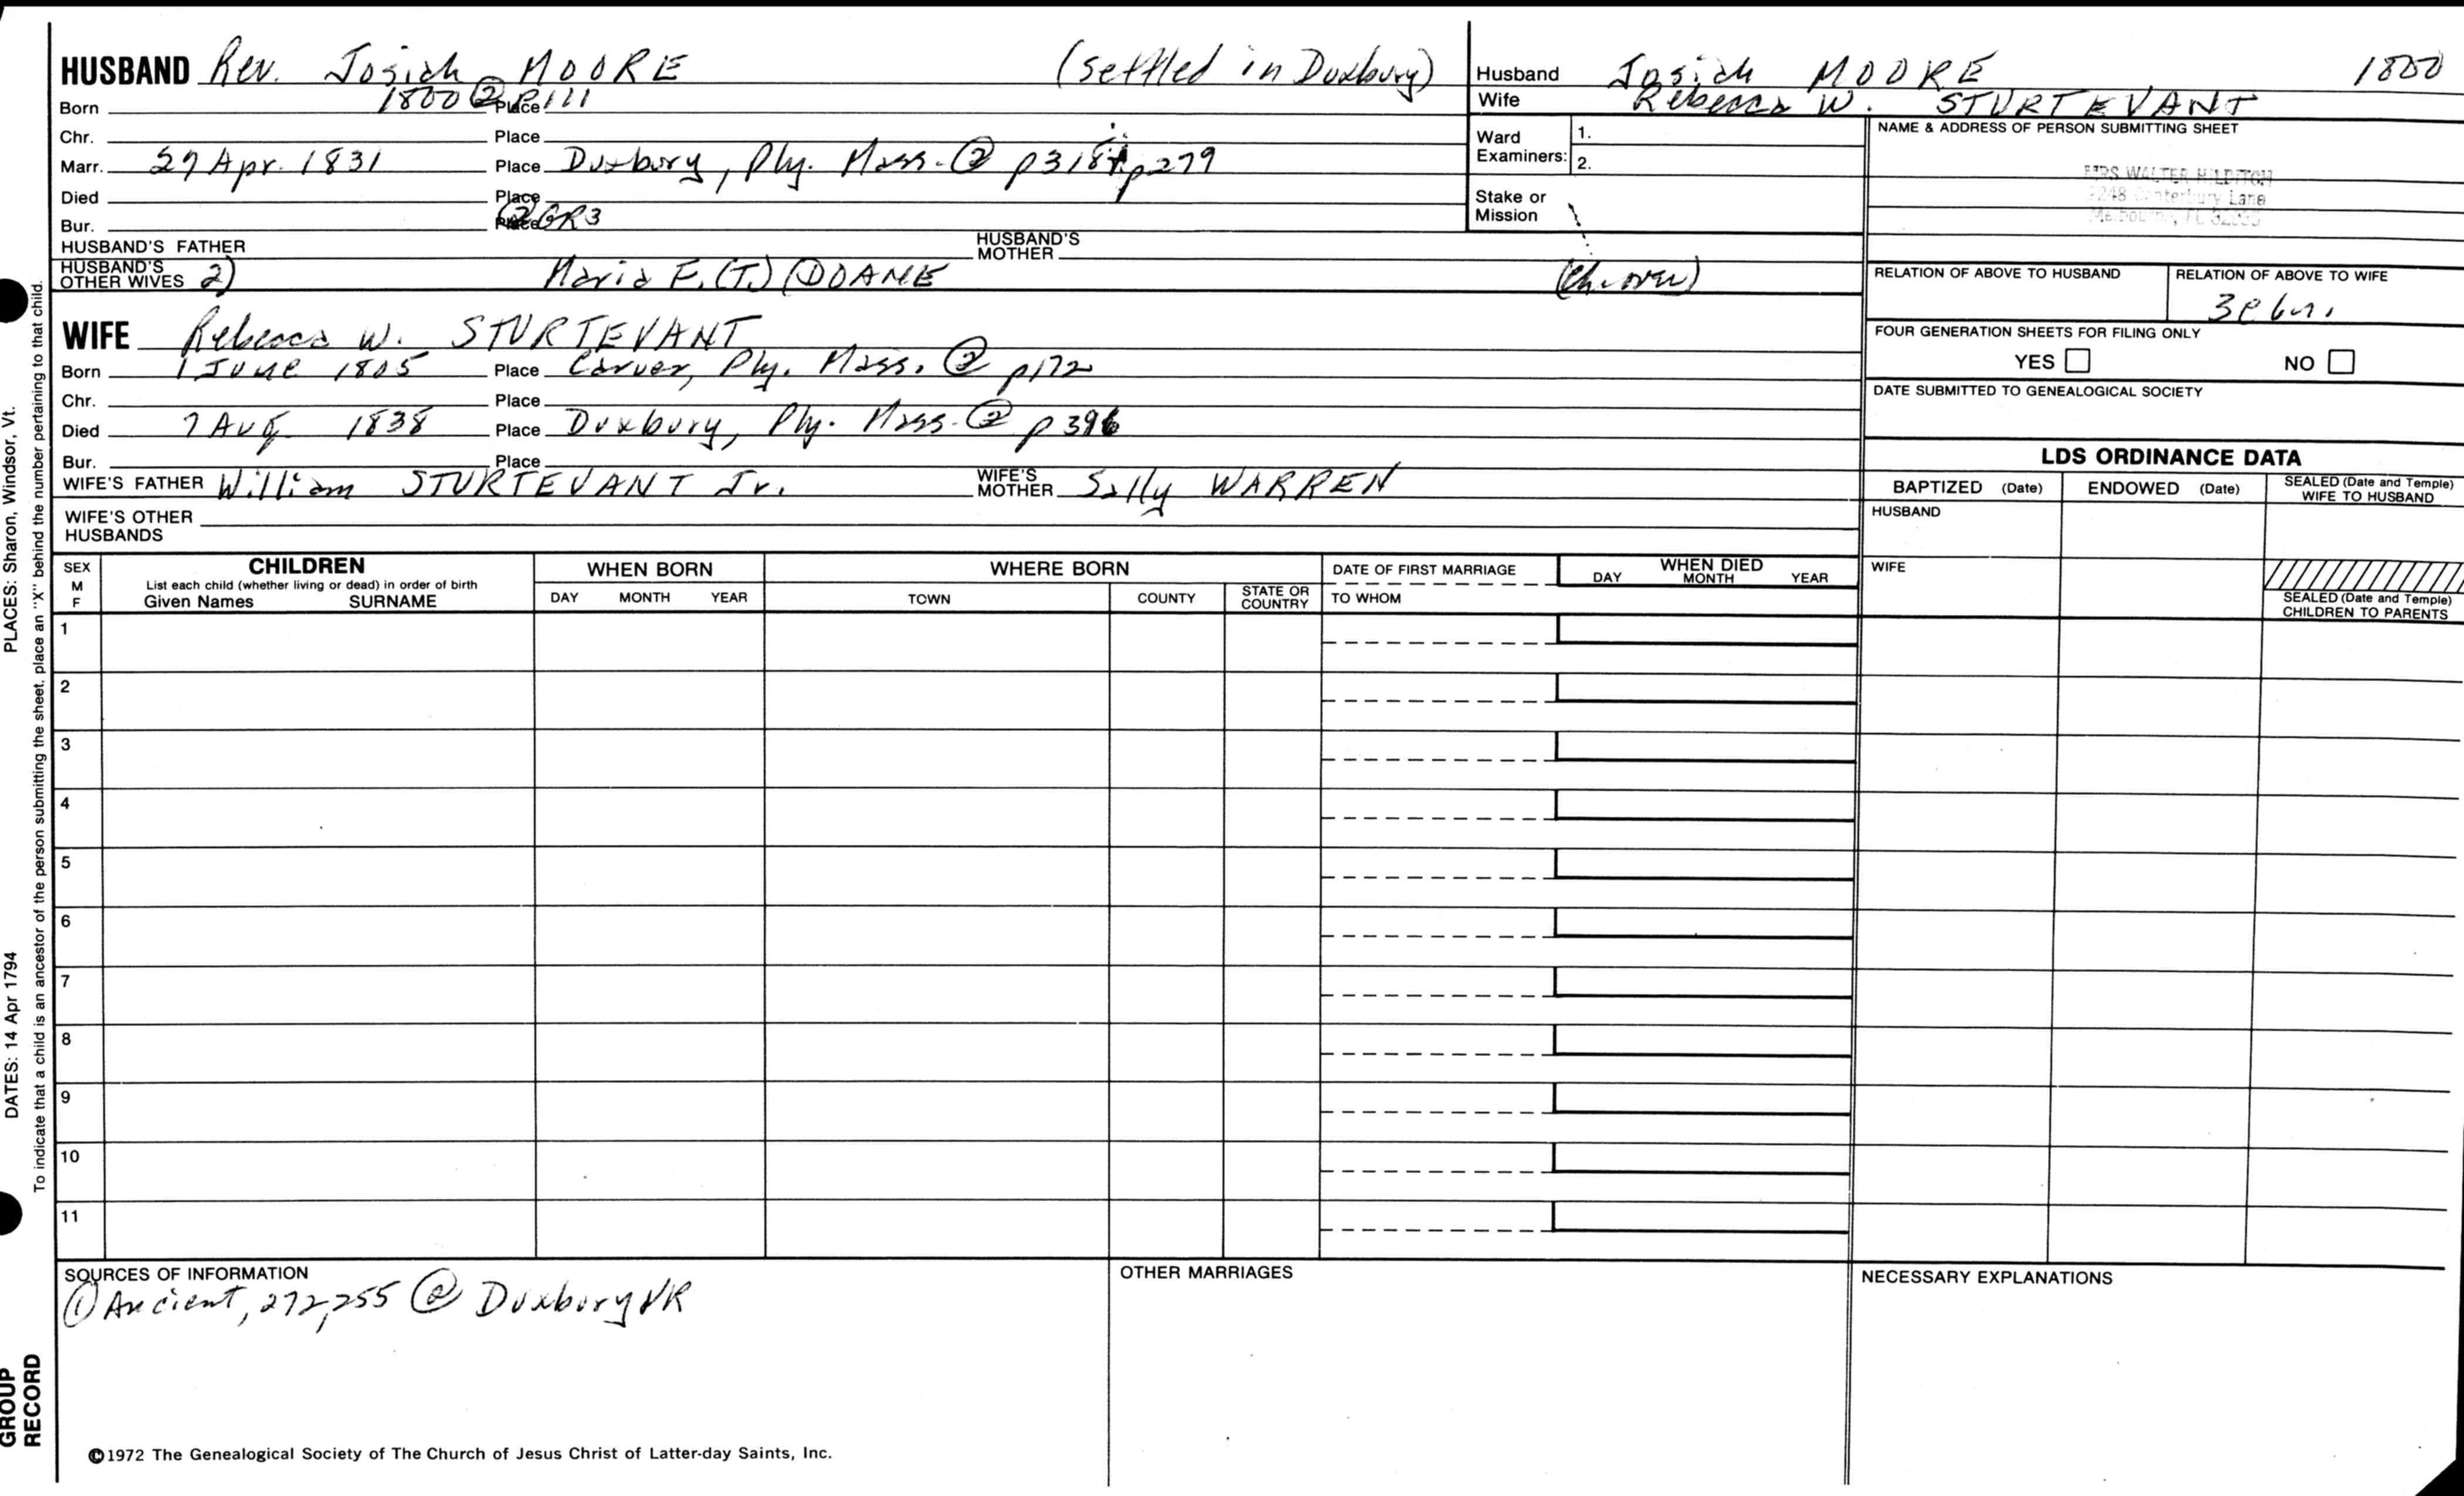 HUSBAND Rev. Josiah MOORE (settled in Duxbury)
Born 1800 ② p111 Place
Chr. Place
Marr. 27 Apr. 1831 Place Duxbury, Ply. Mass. ② p318 p279
Died Place
Bur. Place ② GR3
HUSBAND'S FATHER HUSBAND'S MOTHER
HUSBAND'S OTHER WIVES 2) Maria F. (T.) DOANE
WIFE Rebecca W. STURTEVANT
Born 1 June 1805 Place Carver, Ply. Mass. ② p172
Chr. Place
Died 7 Aug 1838 Place Duxbury, Ply. Mass. ② p396
Bur. Place
WIFE'S FATHER William STURTEVANT Jr. WIFE'S MOTHER Sally WARREN
WIFE'S OTHER HUSBANDS
Husband Josiah MOORE 1800
Wife Rebecca W. STURTEVANT
Ward Examiners: 1.
2.
Stake or Mission
NAME & ADDRESS OF PERSON SUBMITTING SHEET
MRS WALTER HILDITCH
Canterbury Lane
RELATION OF ABOVE TO HUSBAND RELATION OF ABOVE TO WIFE
FOUR GENERATION SHEETS FOR FILING ONLY
YES NO
DATE SUBMITTED TO GENEALOGICAL SOCIETY
LDS ORDINANCE DATA
BAPTIZED (Date) ENDOWED (Date) SEALED (Date and Temple) WIFE TO HUSBAND
HUSBAND
WIFE
SEALED (Date and Temple) CHILDREN TO PARENTS
SEX M F
CHILDREN
List each child (whether living or dead) in order of birth
Given Names SURNAME
WHEN BORN
DAY MONTH YEAR
WHERE BORN
TOWN COUNTY STATE OR COUNTRY
DATE OF FIRST MARRIAGE
TO WHOM
WHEN DIED
DAY MONTH YEAR
1
2
3
4
5
6
7
8
9
10
11
SOURCES OF INFORMATION
① Ancient, 272, 255 ② Duxbury VR
OTHER MARRIAGES
NECESSARY EXPLANATIONS
©1972 The Genealogical Society of The Church of Jesus Christ of Latter-day Saints, Inc.
PLACES: Sharon, Windsor, Vt.
DATES: 14 Apr 1794
To indicate that a child is an ancestor of the person submitting the sheet, place an "X" behind the number pertaining to that child.
GROUP RECORD